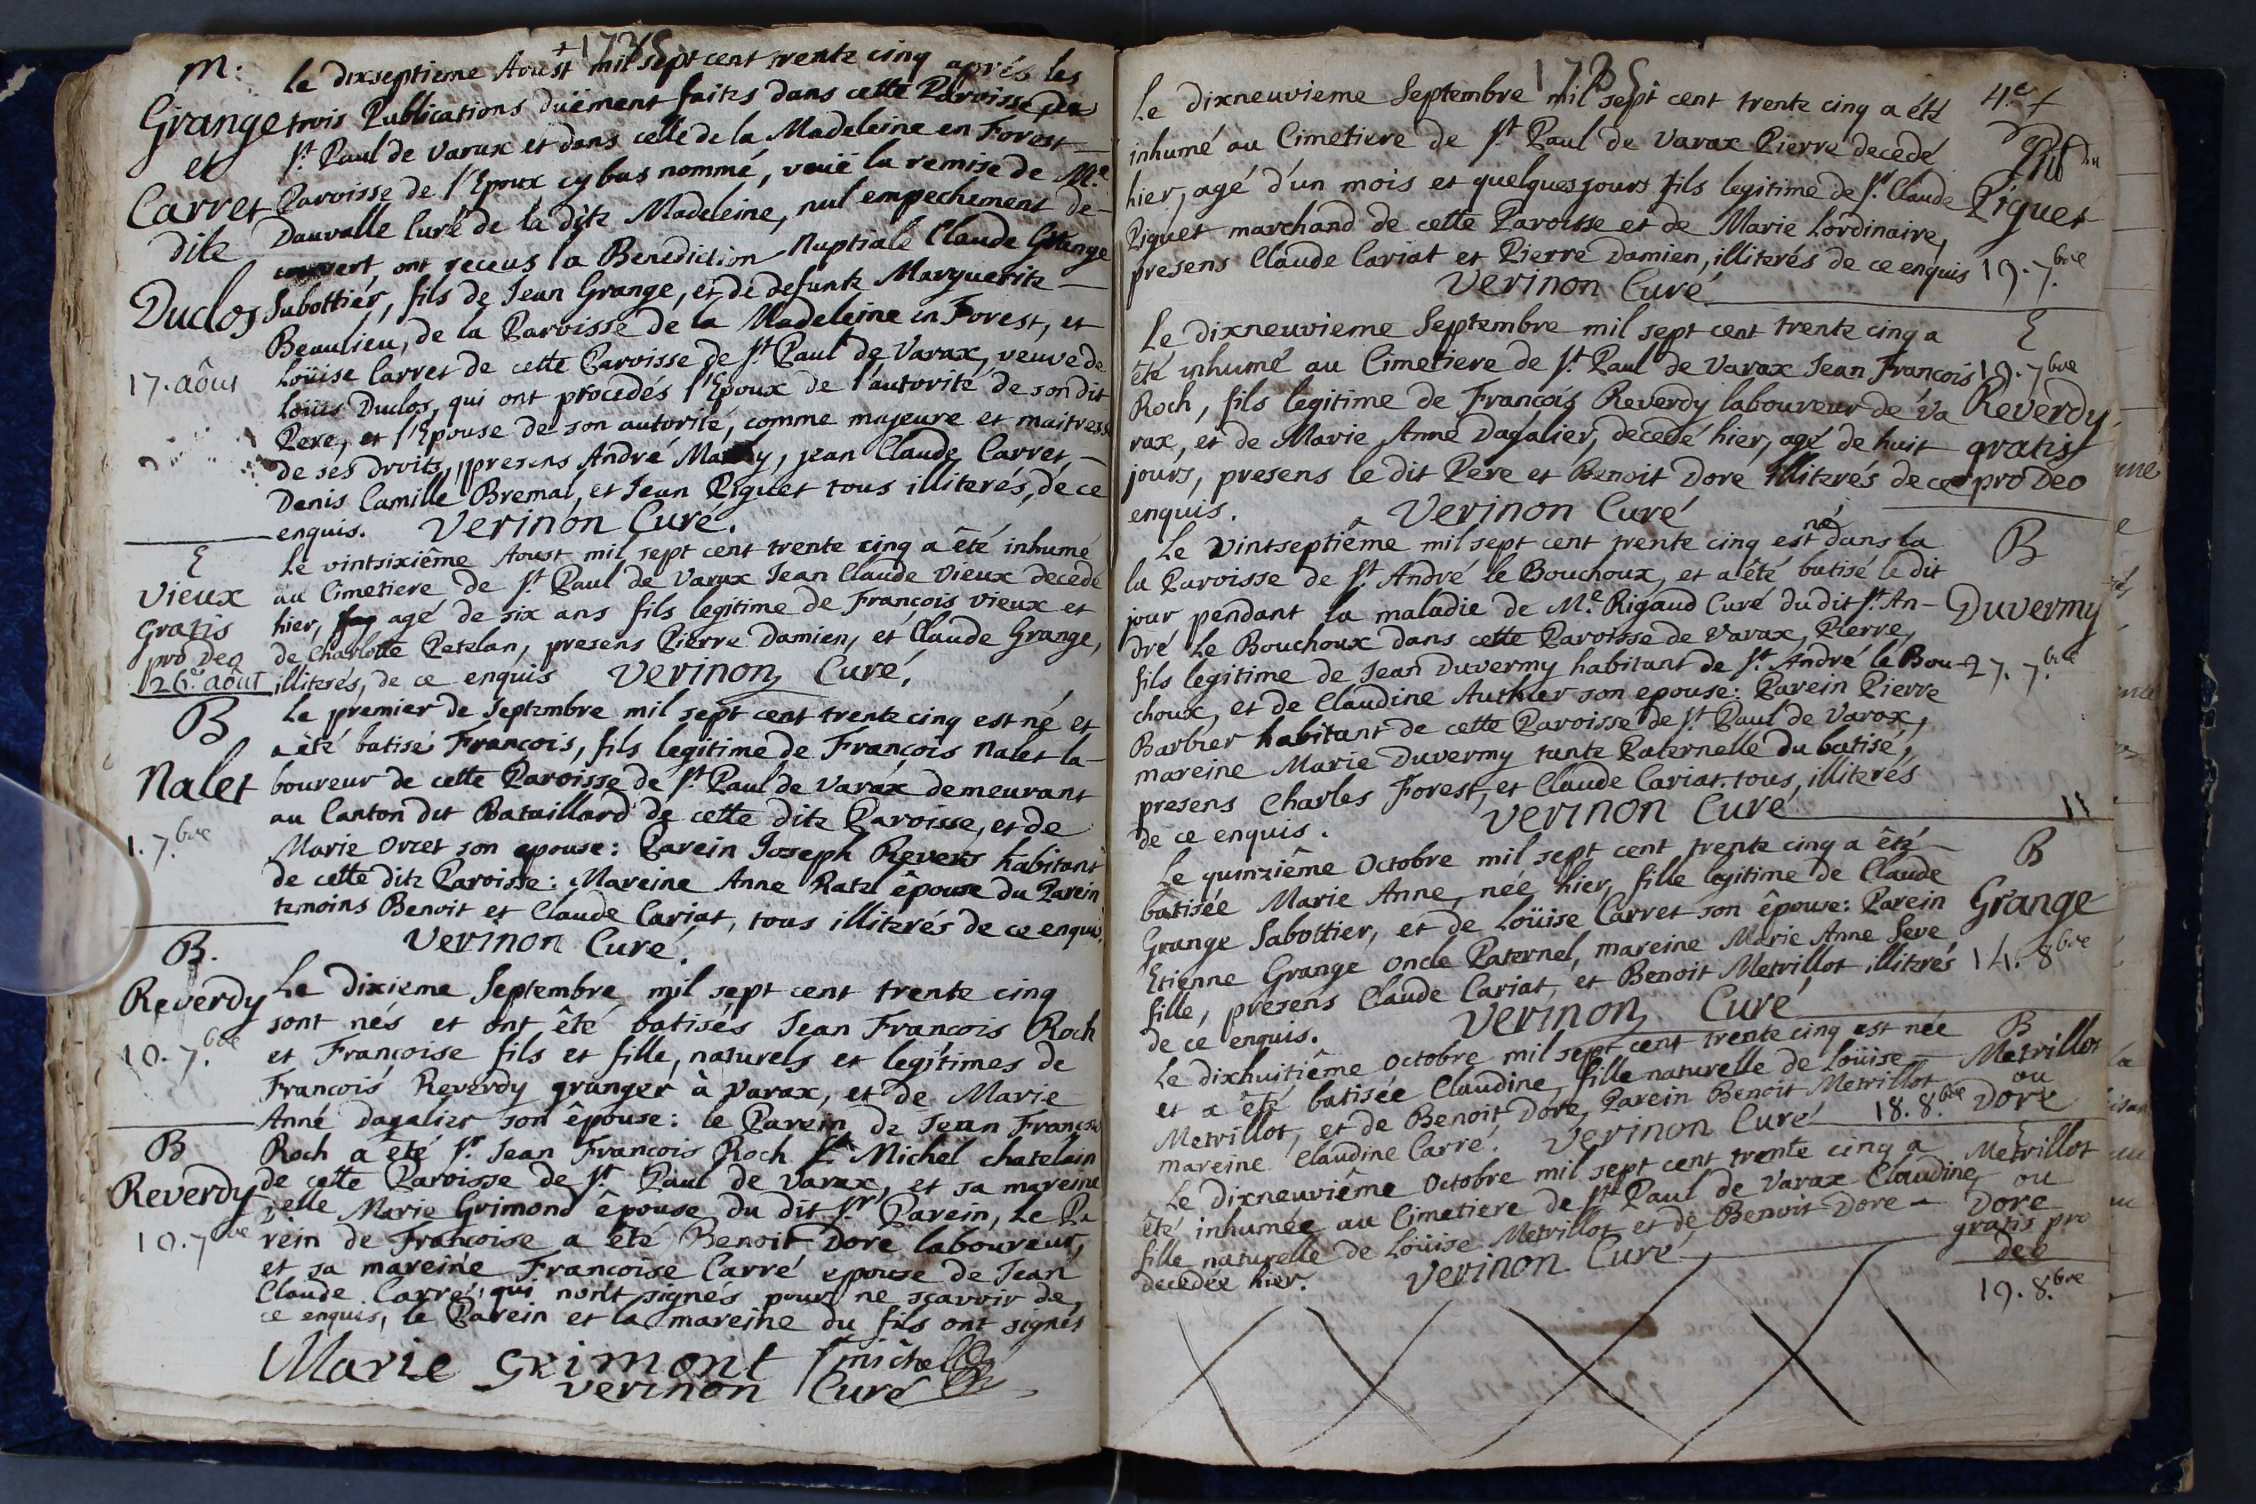 1735
m:
Grange
et
Carret
dite
Duclos
17. aôut
le dixseptieme Aoust mil sept cent trente cinq aprés les
trois Publications duëment faites dans cette Paroisse de
St. Paul de Varax et dans celle de la Madeleine en Forest
Paroisse de l'Epoux cy bas nommé, veuë la remise de Mre.
Dauvalle Curé de la dite Madeleine, nul empechement de-
couvert, ont receus la Benediction Nuptiale Claude Grange
Sabottier, fils de Jean Grange, et de defunte Marguerite
Beaulieu, de la Paroisse de la Madeleine en Forest, et
Loüise Carret de cette Paroisse de St. Paul de Varax, veuve de
Loüis Duclos, qui ont procedés l'Epoux de l'autorité de son dit
Pere, et l'Epouse de son autorité, comme majeure et maitresse
de ses Droits, presens André, jean Claude Carret,
Denis Camille Bremal, et Jean Piguet tous illiterés, de ce
enquis. Verinon Curé.
E
Vieux
Gratis
pro Deo
26. aout
Le vintsixiême Aoust mil sept cent trente cinq a êté inhumé
au Cimetiere de St. Paul de Varax Jean Claude Vieux decedé
hier, agé de six ans fils legitime de François Vieux et
de Charlotte Petelan, presens Pierre Damien, et Claude Grange,
illiterés, de ce enquis Verinon Curé.
B
Nalet
1. 7.bre
Le premier de Septembre mil sept cent trente cinq est né et
a êté batisé François, fils legitime de François Nalet la-
boureur de cette Paroisse de St. Paul de Varax demeurant
au Canton dit Bataillard de cette dite Paroisse, et de
Marie Orcet son epouse: Parein Joseph Revers habitant
de cette dite Paroisse: Mareine Anne Rate êpouse du Parein
temoins Benoit et Claude Cariat, tous illiterés de ce enquis.
Verinon Curé.
B.
Reverdy
10. 7.bre
Le dixieme Septembre mil sept cent trente cinq
sont nés et ont êté batisés Jean François Roch
et Françoise fils et fille, naturels et legitimes de
François Reverdy granger à Varax, et de Marie
Anne Dagalier son êpouse: le Parein de Jean François
B
Reverdy
10. 7bre
Roch a êté Sr. Jean François Roch St Michel chatelain
de cette Paroisse de St. Paul de Varax, et sa mareine
Delle Marie Grimond êpouse du dit Sr. Parein, Le Pa
rein de Françoise a êté Benoit Dore laboureur,
et sa mareine Françoise Carré epouse de Jean
Claude Carré, qui n'ont signés pour ne sçavoir de
ce enquis, le Parein et la mareine du fils ont signés
Marie Grimont St michel
Verinon Curé
1735
4.e +
Piguet
19. 7.bre
Le dixneuvieme Septembre mil sept cent trente cinq a été
inhumé au Cimetiere de St. Paul de Varax Pierre decedé
hier, agé d'un mois et quelques jours fils legitime de Sr. Claude
Piguet marchand de cette Paroisse et de Marie Lordinaire,
presens Claude Cariat et Pierre Damien, illiterés de ce enquis
Verinon Curé
E
19. 7bre
Reverdy
gratis
pro Deo
Le dixneuvieme Septembre mil sept cent trente cinq a
êté inhumé au Cimetiere de St. Paul de Varax Jean François
Roch, fils legitime de François Reverdy laboureur de Va
rax, et de Marie Anne Dagalier, decedé hier, agé de huit
jours, presens le dit Pere et Benoit Dore illiterés de ce
enquis. Verinon Curé
B
Duvermy
27. 7.bre
Le Vintseptiême mil sept cent trente cinq est né dans la
la Paroisse de St. André le Bouchoux, et a êté batisé le dit
jour pendant la maladie de Mre. Rigaud Curé du dit St. An-
dré Le Bouchoux dans cette Paroisse de Varax, Pierre,
fils legitime de Jean Duvermy habitant de St. André le Bou-
choux, et de Claudine Authier son epouse: Parein Pierre
Barbier habitant de cette Paroisse de St. Paul de Varax,
mareine Marie Duvermy tante Paternelle du batisé,
presens Charles Forest, et Claude Cariat, tous illiterés
de ce enquis. Verinon Curé
B
Grange
14. 8bre
Le quinziême Octobre mil sept cent trente cinq a êté
batisée Marie Anne née hier, fille legitime de Claude
Grange Sabottier, et de Loüise Carret son êpouse: Parein
Etienne Grange Oncle Paternel, mareine Marie Anne Seve
fille, presens Claude Cariat, et Benoit Metrillot illiterés
de ce enquis. Verinon Curé
B
Metrillot
ou
Dore
18. 8.bre
Le dixhuitiême Octobre mil sept cent trente cinq est née
et a êté batisée Claudine, fille naturelle de Loüise
Metrillot, et de Benoit Dore, Parein Benoit Metrillot
mareine Claudine Carré. Verinon Curé
E
Metrillot
ou
Dore
gratis pro
deo
19. 8.bre
Le dixneuviême Octobre mil sept cent trente cinq a
êté inhumée au Cimetiere de St. Paul de Varax Claudine,
fille naturelle de Loüise Metrillot et de Benoit Dore
decedée hier. Verinon Curé